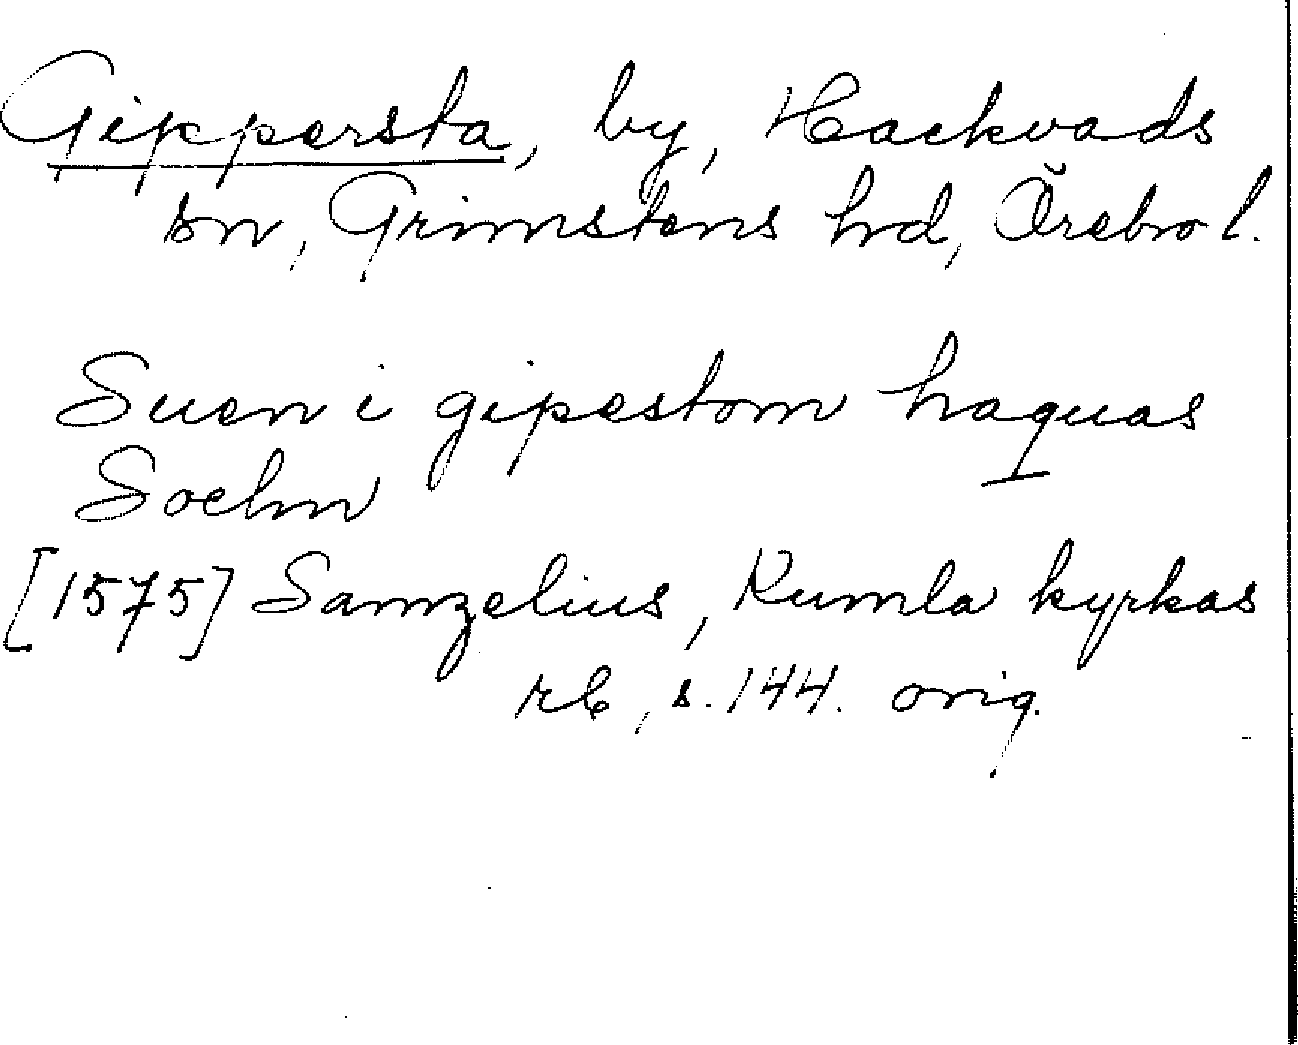 Gippersta, by, Hackvads
sn, Grimstens hd, Örebro l.
Suen i gipestom haquas
Sochn
[1575] Samzelius, Kumla kyrkas
rb, s. 144. orig.